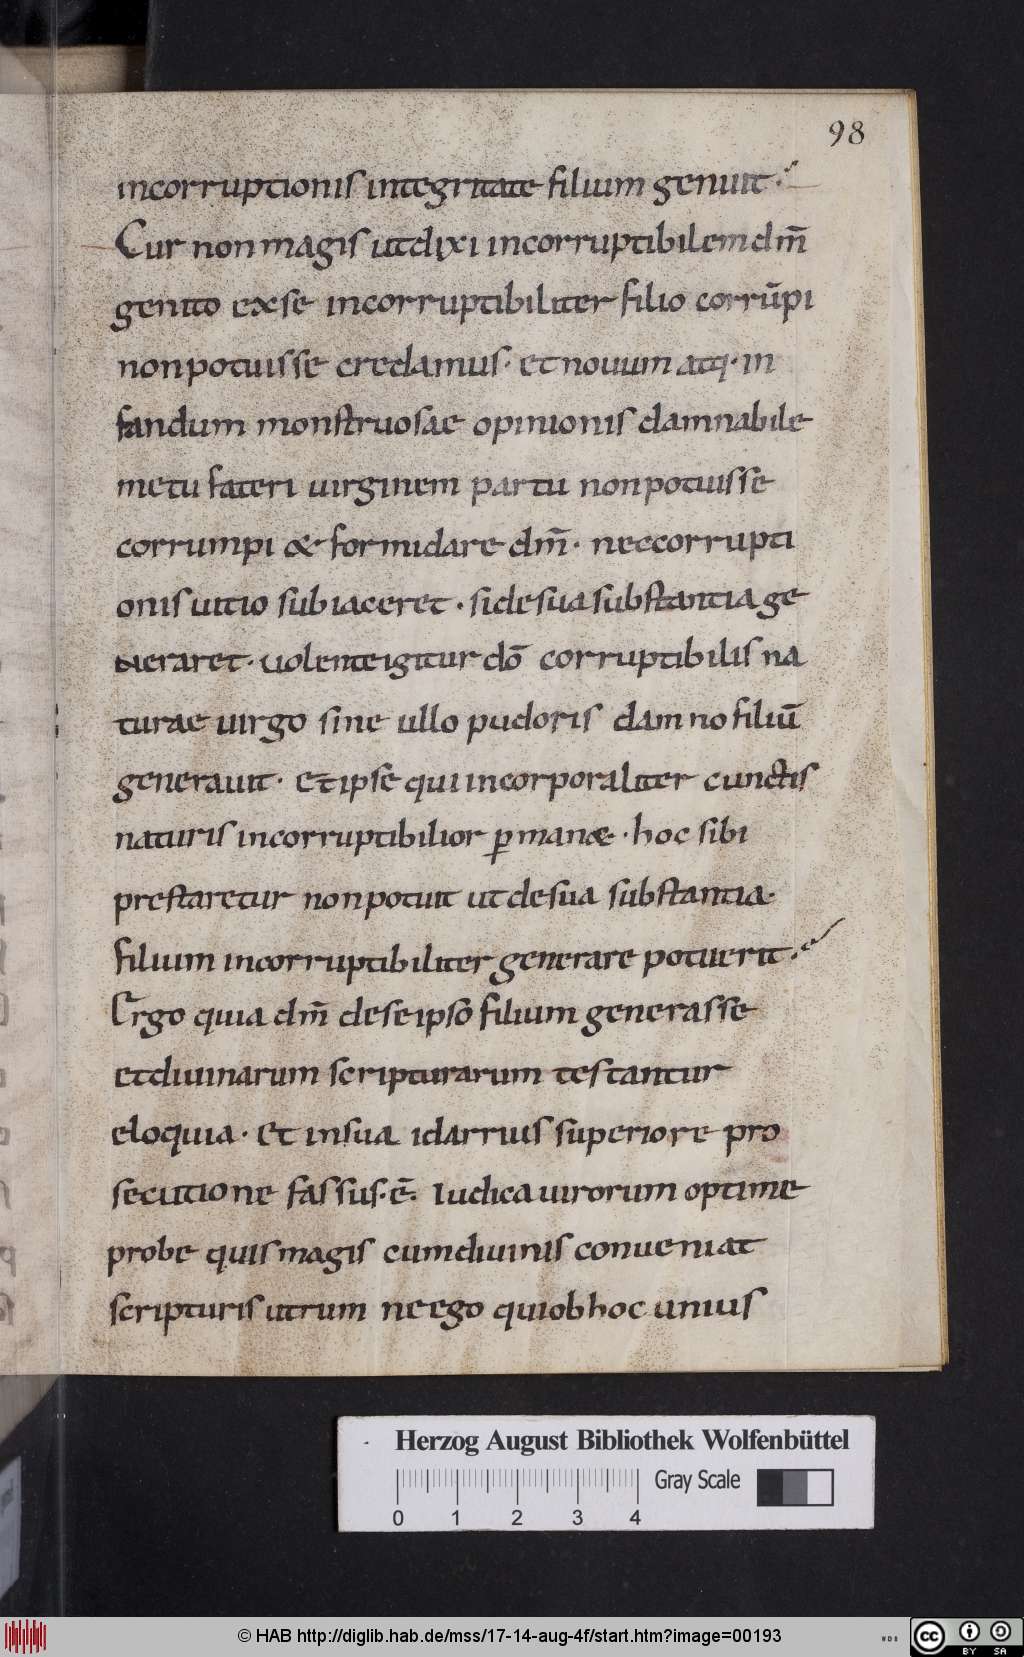 98
incorruptionis integritate filium genuit·
Cur non magis ut dixi incorruptibilem dm̄
genito ex se incorruptibiliter filio corrūpi
non potuisse credamus· et nouum atq· in
fandum monstruosae opinionis damnabile
metu fateri uirginem partu non potuisse
corrumpi & formidare dm̄· nec corrupti
onis uitio subiaceret· si de sua substantia ge
neraret· uolente igitur dō corruptibilis na
turae uirgo sine ullo pudoris damno filiū
generauit· et ipse qui incorporaliter cunctis
naturis incorruptibilior p̱man&· hoc sibi
prestaretur non potuit ut de sua substantia·
filium incorruptibiliter generare potuerit·
Ergo quia dm̄ de se ipso filium generasse
et diuinarum scripturarum testantur
eloquia· et in sua id arrius superiore pro
secutione fassus· ē· Iudica uirorum optime
probe quis magis cum diuinis conueniat
scripturis utrum ne ego qui ob hoc unius
Herzog August Bibliothek Wolfenbüttel
Gray Scale
0 1 2 3 4
© HAB http://diglib.hab.de/mss/17-14-aug-4f/start.htm?image=00193
WDB
cc BY SA